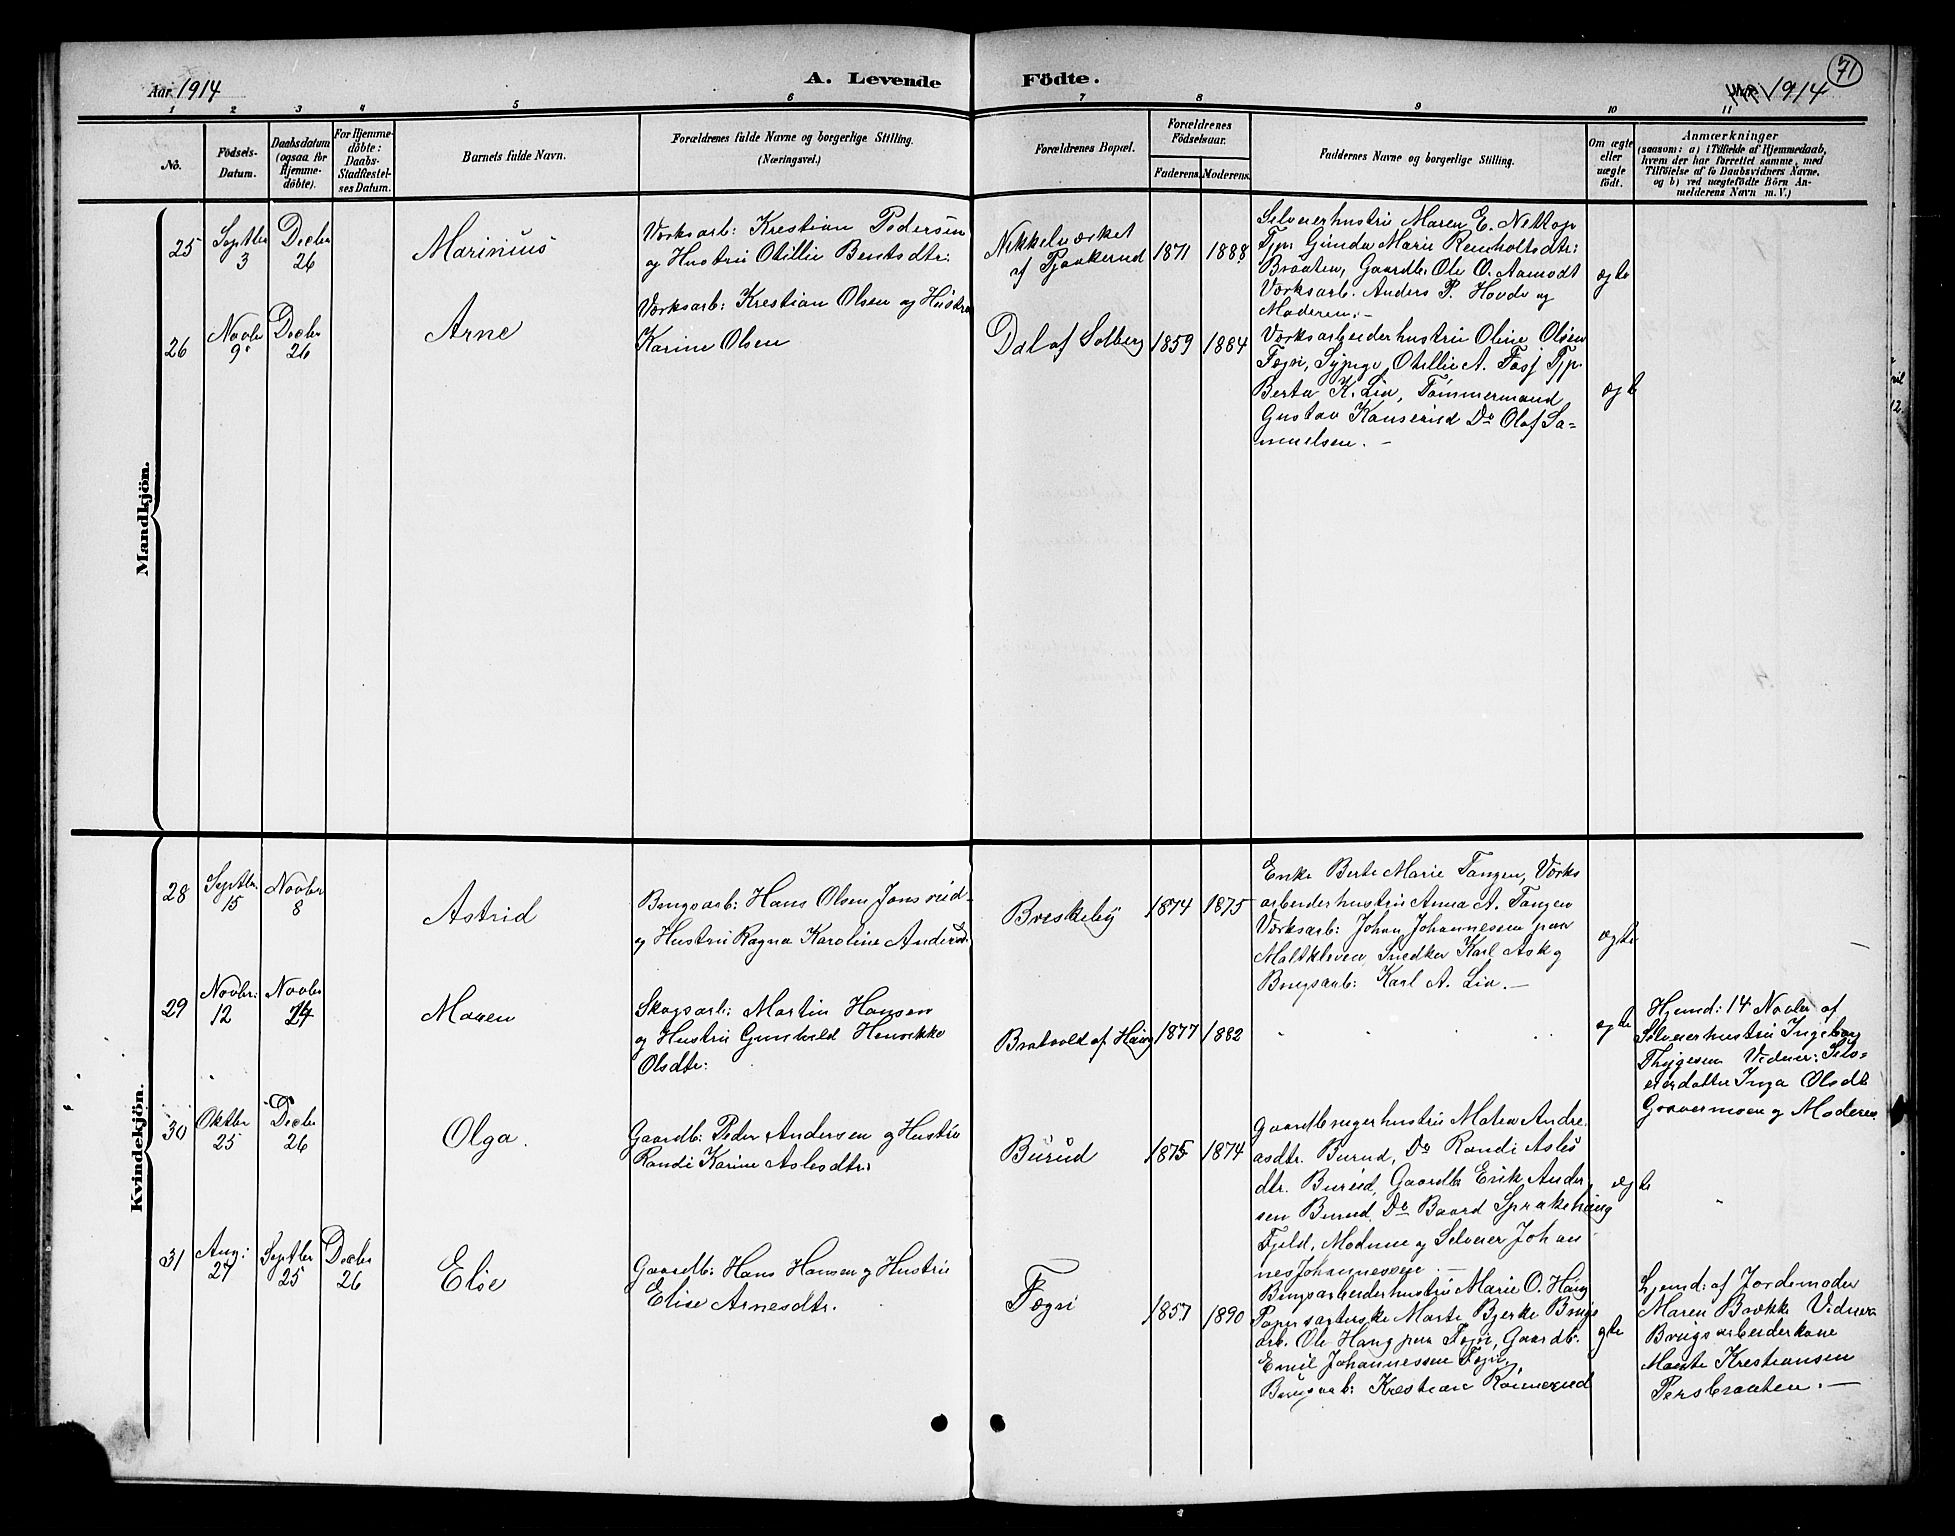 71
Aar 1914
A. Levende Födte.
1914
1 2 3 4 5 6 7 8 9 10 11
No.
Födsels-
Datum.
Daabsdatum
(ogsaa for
Hjemme-
döbte).
For Hjemme-
döbte:
Daabs-
Stadfæstel-
ses Datum.
Barnets fulde Navn.
Forældrenes fulde Navne og borgerlige Stilling.
(Næringsvei.)
Forældrenes Bopæl.
Forældrenes
Födselsaar.
Faderens. Moderens.
Faddernes Navne og borgerlige Stilling.
Om ægte
eller
uægte
födt.
Anmærkninger
(saasom: a) i Tilfælde af Hjemmedaab,
hvem der har forrettet samme, med
Tilföielse af to Daabsvidners Navne,
og b) ved uægtefödte Börn An-
melderens Navn m. V.)
Mandkjön.
25
Septbr
3
Decbr
26
Marinius
Værksarb: Krestian Pedersen
og Hustru Otillie Bentsdtr:
Nikkelværket
af Tjaakerud
1871
1888
Selveierhustru Maren E. Nettop
Tjp: Gunda Marie Reinholtsdtr:
Braaten, Gaardb. Ole O. Aamodt
Værksarb. Anders P. Hovde og
Moderen. -
ægte
26
Novbr
9
Decbr
26
Arne
Værksarb: Krestian Olsen og Hustru
Karine Olsen
Dal af Solberg
1859
1884
Værksarbeiderhustru Oline Olsen
Tægri, Sypige Otillie A. Fosj Tjp.
Berta K. Lia, Tömmermand
Gustav Kanserud Do Olaf Sa=
muelsen. -
ægte
Kvindekjön.
28
Septbr.
15
Novbr
8
Astrid
Brugsarb: Hans Olsen Jonsrud
og Hustru Ragna Karoline Andersd.
Breskeby
1874
1875
Enke Berte Marie Tangen, Værks
arbeiderhustru Anna A. Tangen
Værksarb: Johan Johannessen paa
Maltkleven, Snedker Karl Ask og
Brugsarb: Karl A. Lia. -
ægte
29
Novbr:
12
Novbr
24
Maren
Skogsarb: Martin Hansen
og Hustru Gunhild Henrikke
Olsdtr:
Bratvold af Haug
1877
1882
ægte
Hjemd: 14 Novbr af
Selveierhustru Ingeborg
Thygesen Vidner: Selv-
eierdatter Inga Olsdt
Gravermoen og Moderen
30
Oktbr
25
Decbr
26
Olga.
Gaardb: Peder Andersen og Hustru
Randi Karine Aslesdtr:
Burud
1875
1874
Gaardbrugerhustru Maren Andre
asdtr. Burud, Do Randi Asles
dtr. Burud, Gaardb. Erik Ander
sen Burud, Do Baard Sprakehaug
Fjeld, Modum og Selveier Johan
nes Johannessen -
ægte
31
Aug:
27
Septbr
25
Decbr
26
Else
Gaardb: Hans Hansen og Hustru
Elise Arnesdtr.
Tægri
1857
1890
Brugsarbeiderhustru Marie O. Haug
Papirsorterske Marte Bjerke Brugs
arb. Ole Haug paa Tægri, Gaardb.
Emil Johannessen Tægri,
Brugsarb: Krestian Rönnerud
ægte
Hjemd: af Jordemoder
Maren Brække Vidner
Brugsarbeiderkone
Marte Krestiansen
Persbraaten. -